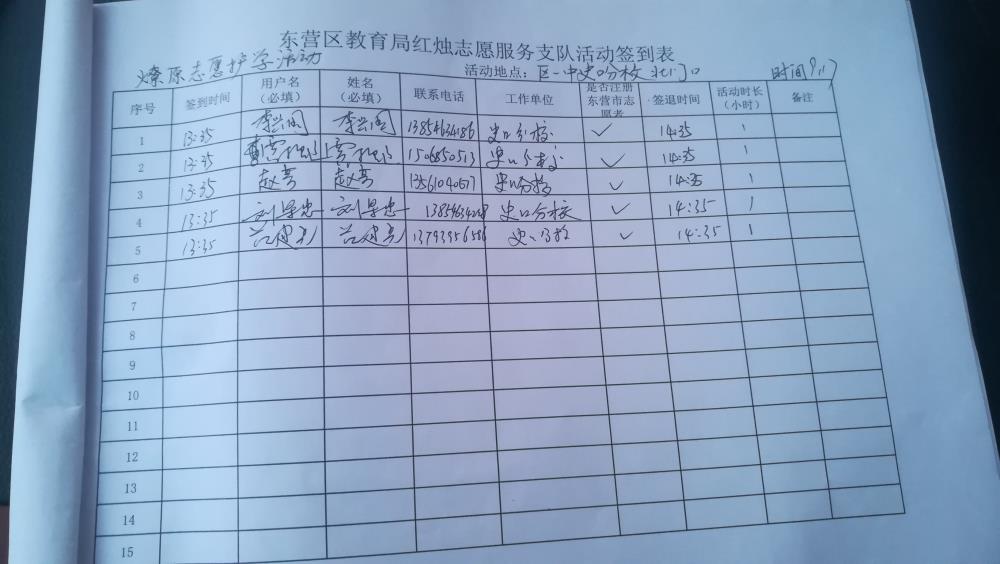 东营区教育局红烛志愿服务支队活动签到表
燎原志愿护学活动
活动地点：区一中史口分校北门口 时间9.17
序号 签到时间 用户名（必填） 姓名（必填） 联系电话 工作单位 是否注册东营市志愿者 签退时间 活动时长（小时） 备注
1 13:35 13854634186 史口分校 ✓ 14:35 1
2 13:35 史口分校 ✓ 14:35 1
3 13:35 赵亮 赵亮 13561040677 史口分校 ✓ 14:35 1
4 13:35 刘景忠 刘景忠 史口分校 ✓ 14:35 1
5 13:35 13793956586 ✓ 14:35 1
6
7
8
9
10
11
12
13
14
15